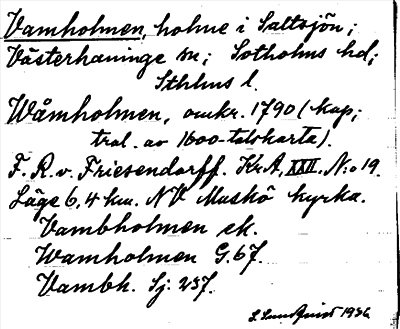 Vamholmen, holme i Saltsjön;
Västerhaninge sn; Sotholms hd;
Sthlms l.
Wåmholmen, omkr. 1790 (kop;
trol. av 1600-talskarta).
F. R. v. Friesendorff. Kr A, XXII. N:o 19.
Läge 6,4 km. NV Muskö kyrka.
Vambholmen ek.
Wamholmen G.67.
Vambh. Sj: 237.
S Lundquist 1936